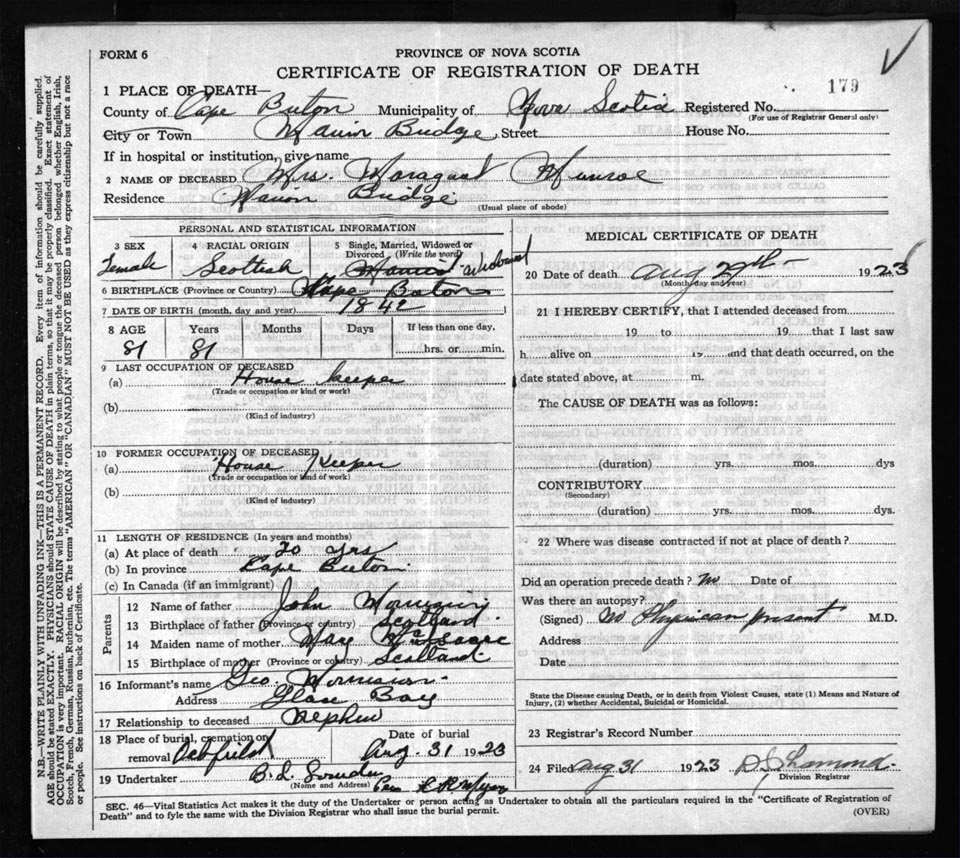 FORM 6
PROVINCE OF NOVA SCOTIA
CERTIFICATE OF REGISTRATION OF DEATH
179
1 PLACE OF DEATH—
County of Cape Breton Municipality of Nova Scotia Registered No.
(For use of Registrar General only)
City or Town Bridge Street House No.
If in hospital or institution, give name
2 NAME OF DECEASED Mrs. Margaret Munroe
Residence Bridge
(Usual place of abode)
PERSONAL AND STATISTICAL INFORMATION
3 SEX Female
4 RACIAL ORIGIN Scottish
5 Single, Married, Widowed or Divorced (Write the word) Married Widowed
6 BIRTHPLACE (Province or Country) Cape Breton
7 DATE OF BIRTH (month, day and year) 1842
8 AGE Years Months Days If less than one day,
81 81 hrs. or min.
9 LAST OCCUPATION OF DECEASED
(a) House keeper
(Trade or occupation or kind or work)
(b)
(Kind of industry)
10 FORMER OCCUPATION OF DECEASED
(a) House Keeper
(Trade or occupation or kind or work)
(b)
(Kind of industry)
11 LENGTH OF RESIDENCE (In years and months)
(a) At place of death 20 yrs
(b) In province Cape Breton
(c) In Canada (if an immigrant)
Parents
12 Name of father John
13 Birthplace of father (Province or country) Scotland
14 Maiden name of mother May McIsaac
15 Birthplace of mother (Province or country) Scotland
16 Informant's name Geo.
Address Glace Bay
17 Relationship to deceased Nephew
18 Place of burial, cremation or removal
Date of burial Aug. 31 1923
19 Undertaker B. L.
(Name and Address) Per
MEDICAL CERTIFICATE OF DEATH
20 Date of death Aug 29th 1923
(Month, day and year)
21 I HEREBY CERTIFY, that I attended deceased from
19 to 19 that I last saw
h alive on 19 and that death occurred, on the
date stated above, at m.
The CAUSE OF DEATH was as follows:
(duration) yrs. mos. dys
CONTRIBUTORY
(Secondary)
(duration) yrs. mos. dys.
22 Where was disease contracted if not at place of death?
Did an operation precede death? No Date of
Was there an autopsy?
(Signed) No Physician present M.D.
Address
Date
State the Disease causing Death, or in death from Violent Causes, state (1) Means and Nature of
Injury, (2) whether Accidental, Suicidal or Homicidal.
23 Registrar's Record Number
24 Filed Aug 31 1923
Division Registrar
SEC. 46—Vital Statistics Act makes it the duty of the Undertaker or person acting as Undertaker to obtain all the particulars required in the "Certificate of Registration of
Death" and to fyle the same with the Division Registrar who shall issue the burial permit.
(OVER)
N.B.—WRITE PLAINLY WITH UNFADING INK—THIS IS A PERMANENT RECORD. Every item of information should be carefully supplied.
AGE should be stated EXACTLY. PHYSICIANS should STATE CAUSE OF DEATH in plain terms, so that it may be properly classified. Exact statement of
OCCUPATION is very important. RACIAL ORIGIN will be described by stating to what people or tongue the deceased person belonged, whether English, Irish,
Scotch, French, German, Russian, Ruthenian, etc. The terms "AMERICAN" OR "CANADIAN" MUST NOT BE USED as they express citizenship but not a race
or people. See instructions on back of Certificate.